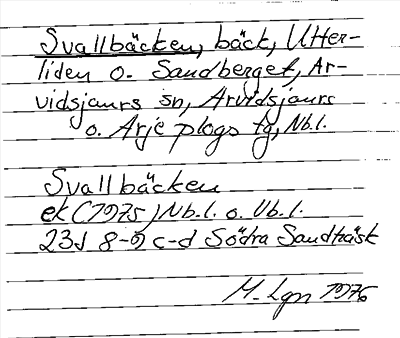 Svallbäcken, bäck, Utter-
liden o. Sandberget, Ar-
vidsjaurs sn, Arvidsjaurs
o. Arjeplogs tg, Nb.l.
Svallbäcken
ek (1975) Nb.l. o. Vb.l.
23J 8-9 c-d Södra Sandträsk
M. Lgn 1976